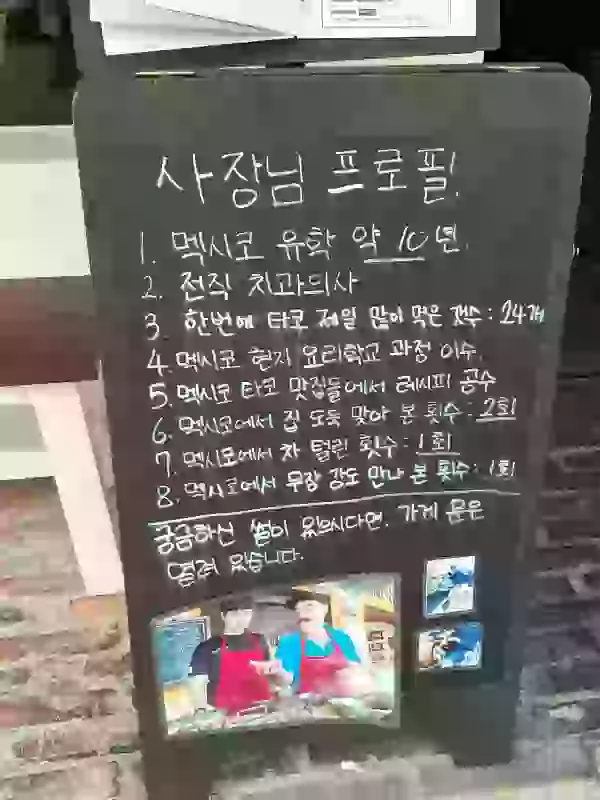 사장님 프로필!
1. 멕시코 유학 약 10년.
2. 전직 치과의사
3. 한번에 타코 제일 많이 먹은 갯수 : 24개
4. 멕시코 현지 요리학교 과정 이수.
5. 멕시코 타코 맛집들에서 레시피 공수
6. 멕시코에서 집 도둑 맞아 본 횟수 : 2회
7. 멕시코에서 차 털린 횟수 : 1회
8. 멕시코에서 무장 강도 만나 본 횟수 : 1회
궁금하신 썰이 있으시다면. 가게 문은
열려 있습니다.